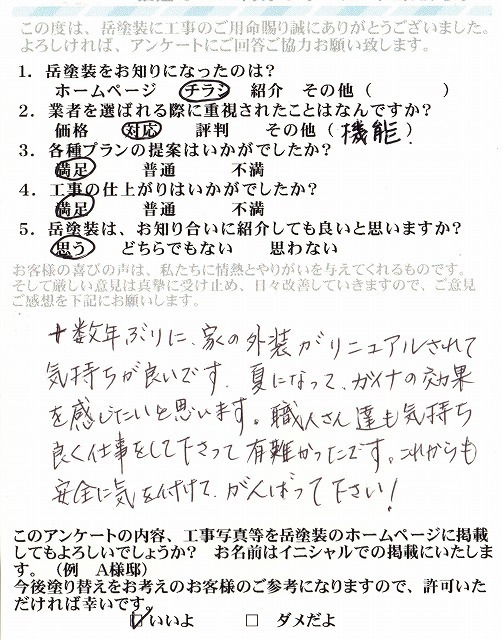 この度は、岳塗装に工事のご用命賜り誠にありがとうございました。
よろしければ、アンケートにご回答ご協力お願い致します。
1．岳塗装をお知りになったのは？
ホームページ　チラシ　紹介　その他（　　　　　）
2．業者を選ばれる際に重視されたことはなんですか？
価格　対応　評判　その他（機能．
3．各種プランの提案はいかがでしたか？
満足　普通　不満
4．工事の仕上がりはいかがでしたか？
満足　普通　不満
5．岳塗装は、お知り合いに紹介しても良いと思いますか？
思う　どちらでもない　思わない
お客様の喜びの声は、私たちに情熱とやりがいを与えてくれるものです。
そして厳しい意見は真摯に受け止め、日々改善していきますので、ご意見
ご感想を下記にお願いします。
十数年ぶりに、家の外装がリニュアルされて
気持ちが良いです．夏になって、ガイナの効果
を感じたいと思います。職人さん達も気持ち
良く仕事をして下さって有難かったです。これからも
安全に気を付けて、がんばって下さい！
このアンケートの内容、工事写真等を岳塗装のホームページに掲載
してもよろしいでしょうか？　お名前はイニシャルでの掲載にいたしま
す。（例　A様邸）
今後塗り替えをお考えのお客様のご参考になりますので、許可いた
だければ幸いです。
☑いいよ　□ ダメだよ